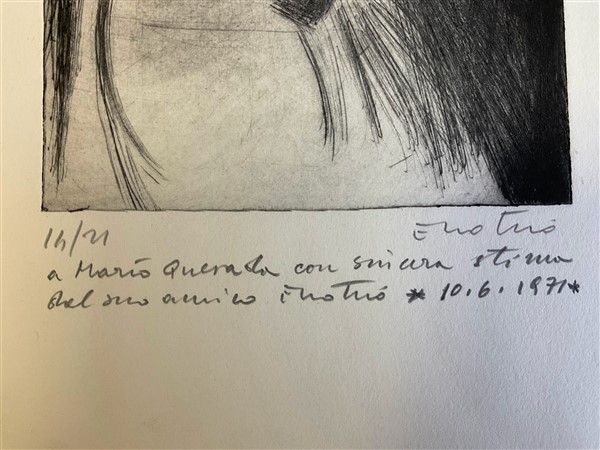 14/21 Enotrio
a Mario Quesada con sincera stima
dal suo amico Enotrio * 10.6.1971*